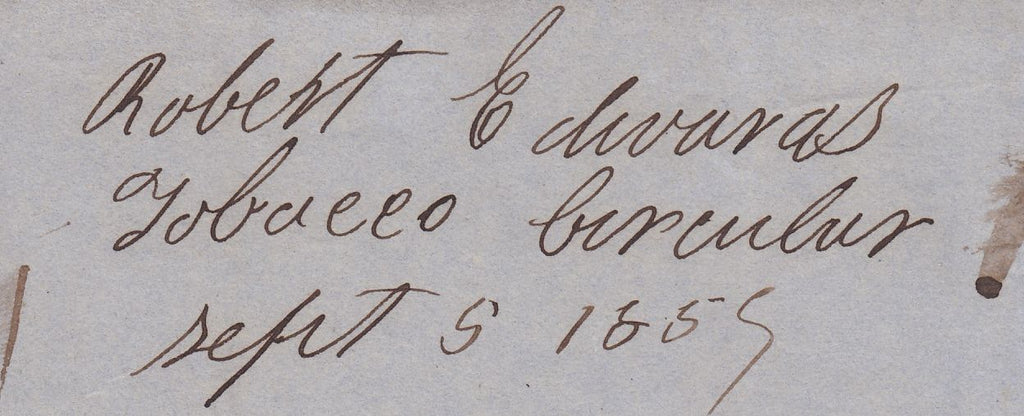 Robert Edwards
Tobacco Circular
sept 5 1859